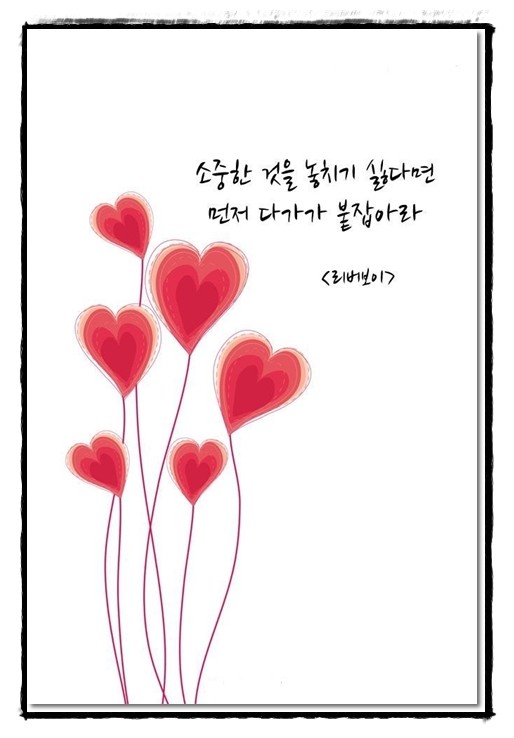 소중한 것을 놓치기 싫다면
먼저 다가가 붙잡아라
<리버보이>